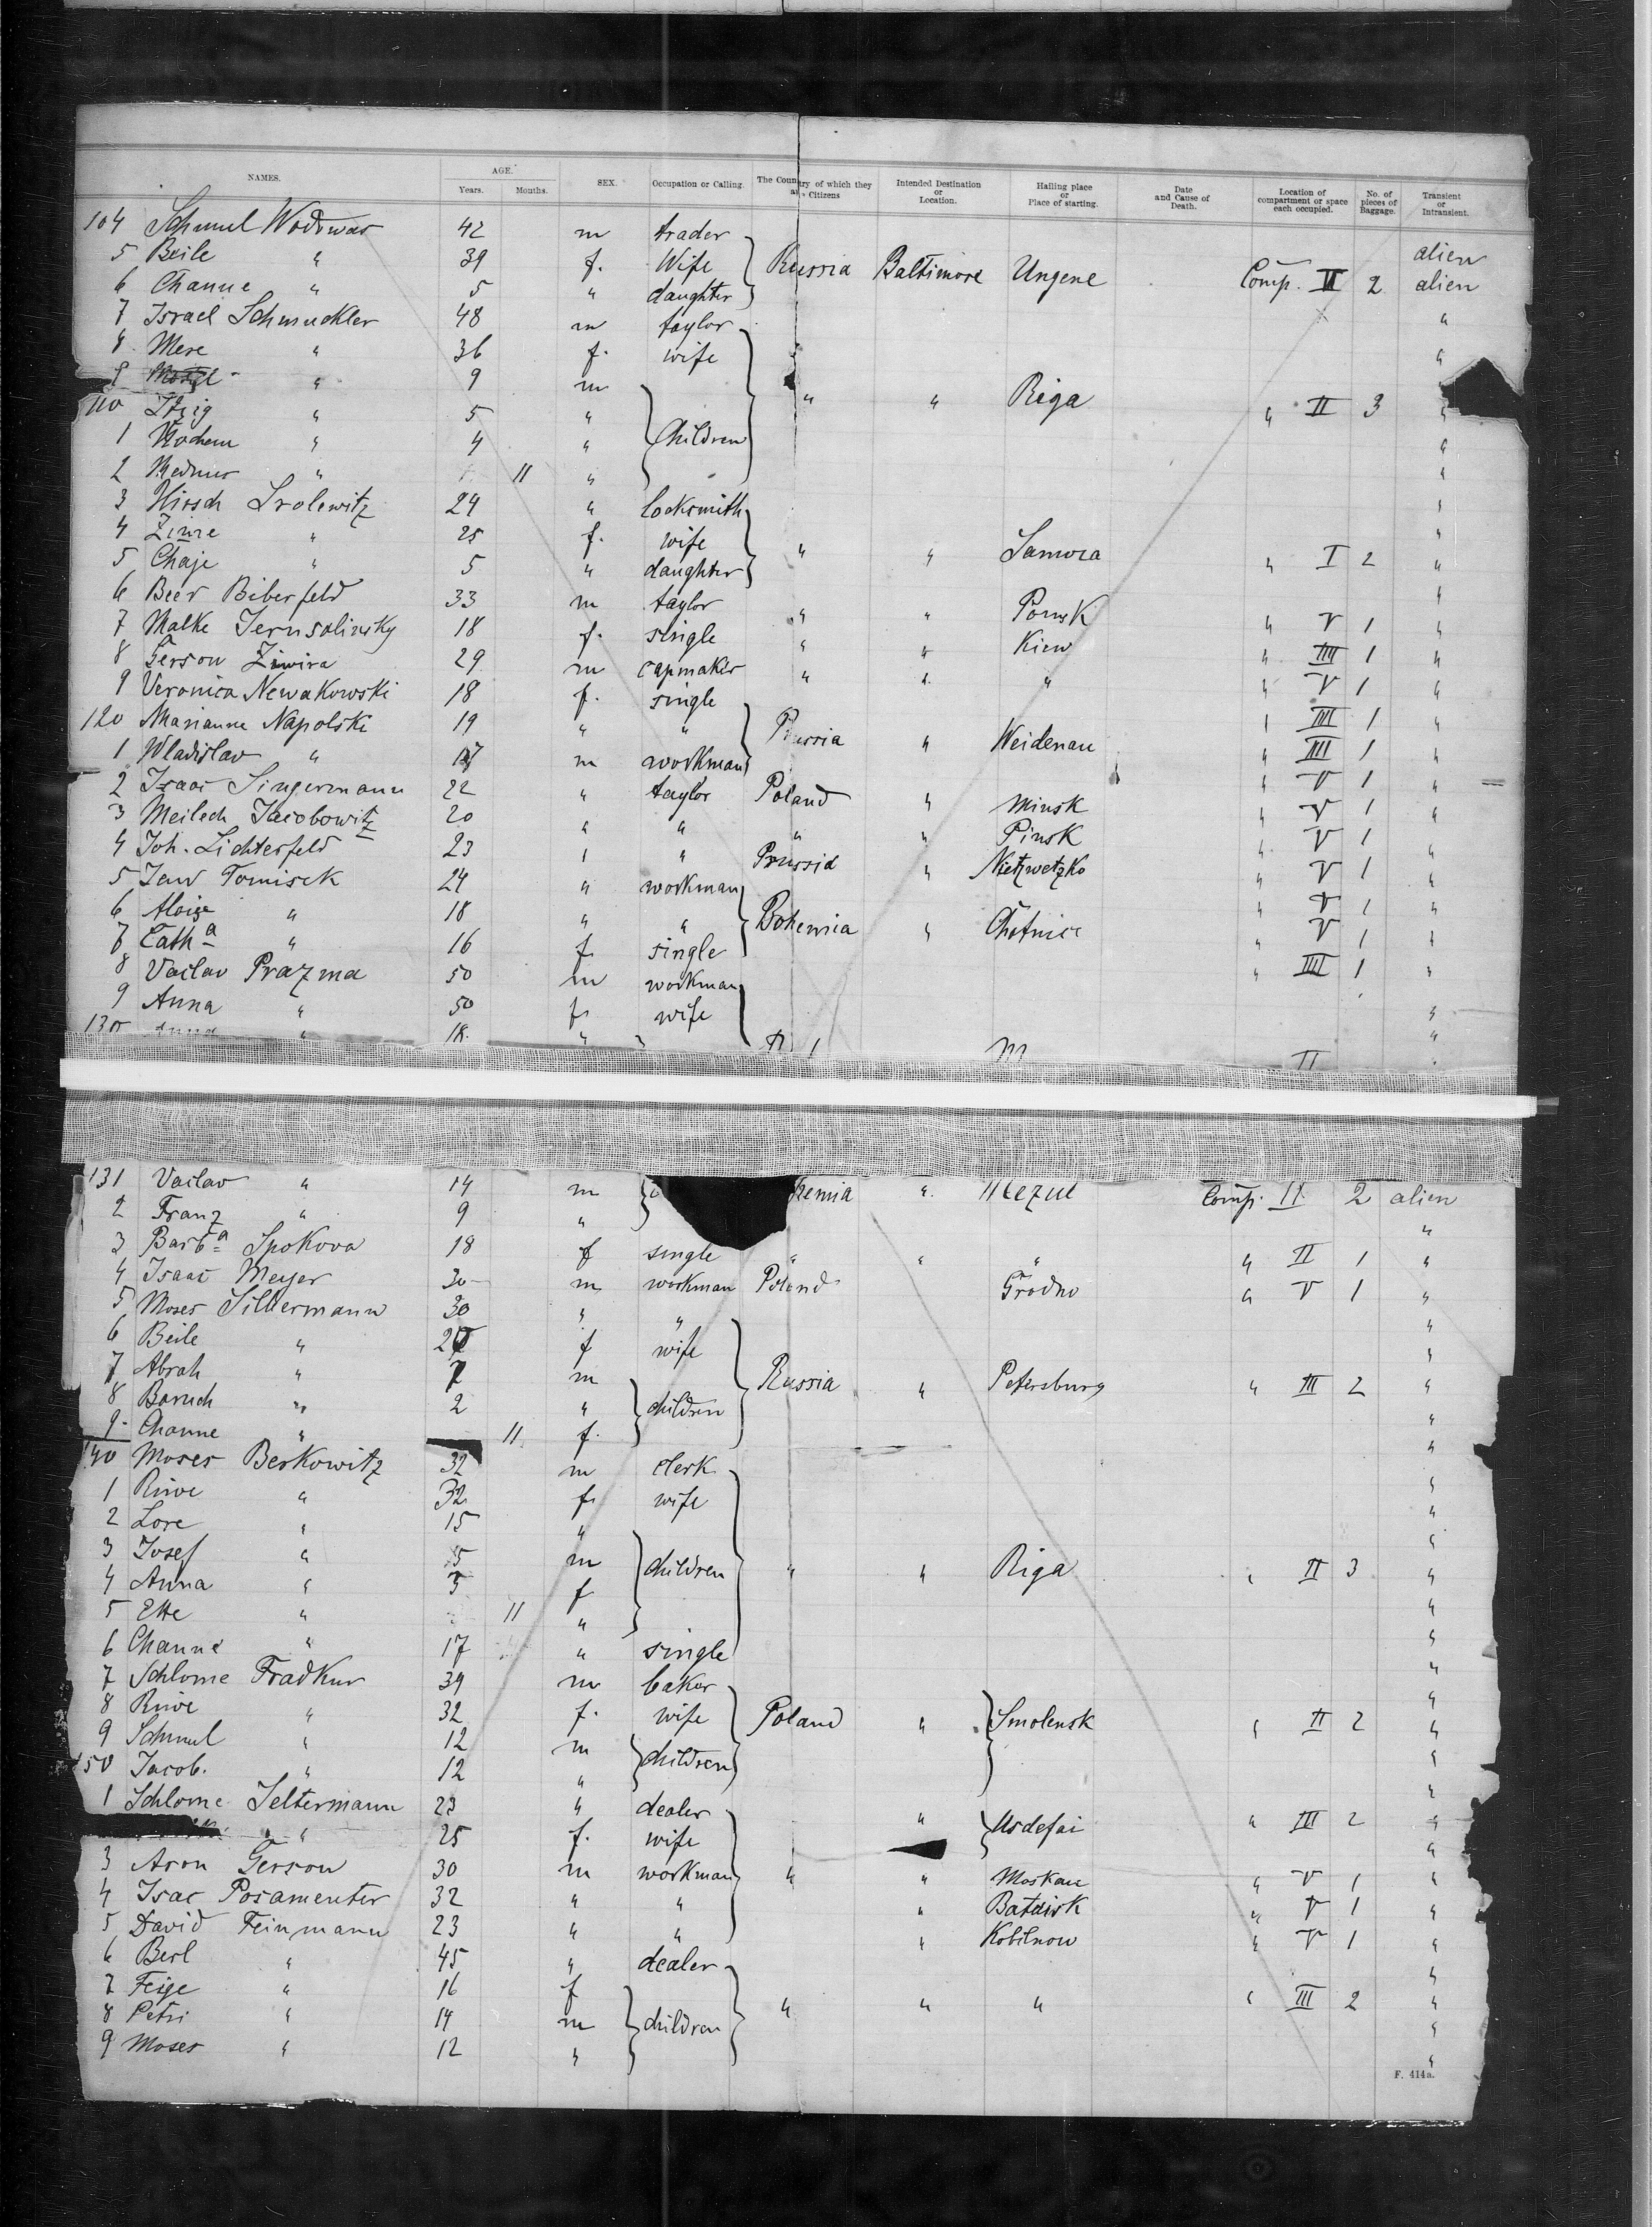 NAMES. AGE. Years. Months. SEX. Occupation or Calling. The Country of which they are Citizens Intended Destination or Location. Hailing place or Place of starting. Date and Cause of Death. Location of compartment or space each occupied. No. of pieces of Baggage. Transient or Intransient.
104 Schmul 42 m trader alien
5 Beile " 39 f. Wife Russia Baltimore Ungene Comp. II 2 alien
6 Channe " 5 " daughter "
7 Israel Schmuckler 48 m taylor "
8 Mere " 36 f. wife
9 " 9 m " " Riga " II 3 "
110 Itzig " 5 " Children "
1 " 4 " "
2 " 11 "
3 Hirsch Srolewitz 24 " locksmith "
4 " 25 f. wife " " " I 2 "
5 Chaje " 5 " daughter "
6 Beer Biberfeld 33 m taylor " " " V 1 "
7 Malke Jerusolinsky 18 f. single " " Kiew " IIII 1 "
8 Gerson 29 m capmaker " " " " V 1 "
9 Veronica Newakowski 18 f. single IIII 1 "
120 Marianne Napolski 19 " " " Weidenau " IIII 1 "
1 Wladislav " 17 m workman " V 1 "
2 Isaac Singermann 22 " taylor Poland " Minsk " V 1 "
3 Meilech Jacobowitz 20 " " " " Pinsk " V 1 "
4 Joh. Lichterfeld 23 " " Prussia " Nietzwetzko " V 1 "
5 Tomisek 24 " workman " V 1 "
6 " 18 " " Bohemia " " V 1 "
7 Cath a " 16 f single " IIII 1 "
8 Vaclav Prazma 50 m workman
9 Anna " 50 f. wife "
130 Anna " 18 " II
131 Vaclav " 14 m hemia " Comp. II 2 alien
2 Franz " 9 " "
3 Barb a Spokova 18 f single " " " " II 1 "
4 Isaac Meyer 30 m workman Poland Grodno " V 1 "
5 Moses Silbermann 30 " " "
6 Beile " f wife "
7 Abrah " m Russia " Petersburg " III 2 "
8 Baruch " 2 " children "
9 Channe " 11 f. "
140 Moses Berkowitz 32 m clerk "
1 Riwe " 32 f. wife "
2 Lore " 15 " "
3 Josef " 5 m children " " Riga " II 3 "
4 Anna " f "
5 Ette " 11 " "
6 Channe " 17 " single "
7 Schlome Fradkin 39 m baker "
8 Riwe " 32 f. wife Poland " Smolensk " II 2 "
9 Schmul " 12 m children "
150 Jacob. " 12 " "
1 Schlome Seltermann 23 " dealer " Usdefai " III 2 "
" 25 f. wife "
3 Aron Gerson 30 m workman " " Moskau " V 1 "
4 Isac Posamenter 32 " " " " V 1 "
5 David Feinmann 23 " " " Kobilnow " V 1 "
6 Berl " 45 " dealer "
7 Feige " 16 f " " " " III 2 "
8 Petri " 14 m children "
9 Moses " 12 " "
F. 414a.